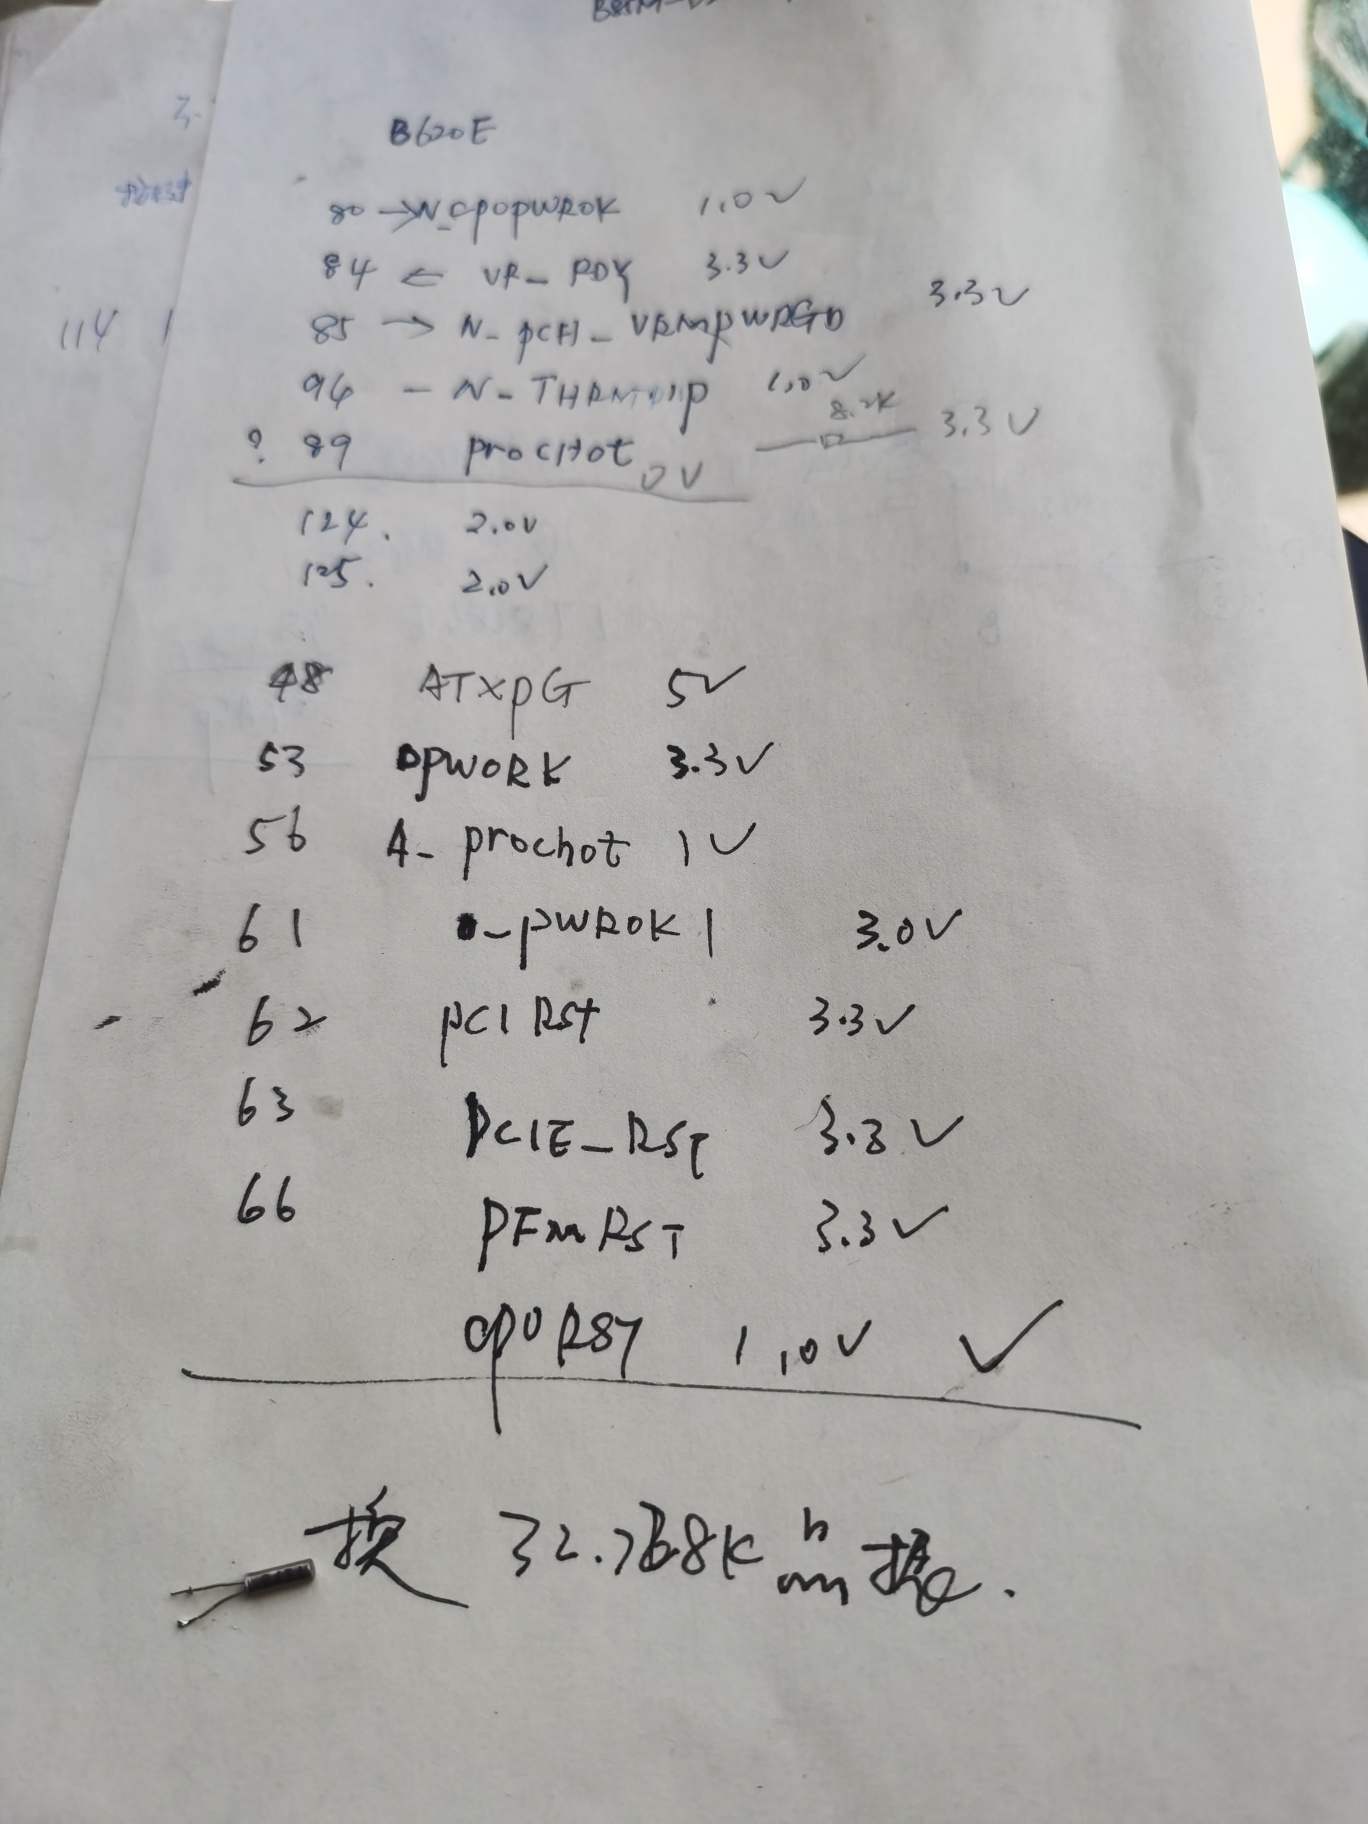 B85M-
B620E
80 → N_cpupWROK 1.0V
84 ← VR_RDY 3.3V
85 → N-pCH-VRMpWRGD 3.3V
96 - N-THRMTrip 1.0V
8.2K
? 89 procHot 0V 3.3V
124. 2.0V
125. 2.0V
114 1
48 ATXpG 5V
53 pWORK 3.3V
56 A- prochot 1V
61 -pWROK1 3.0V
62 pCIRSt 3.3V
63 PCIE-RST 3.3V
66 PFMRST 3.3V
CPURST 1.0V ✓
换 32.768K 晶振.